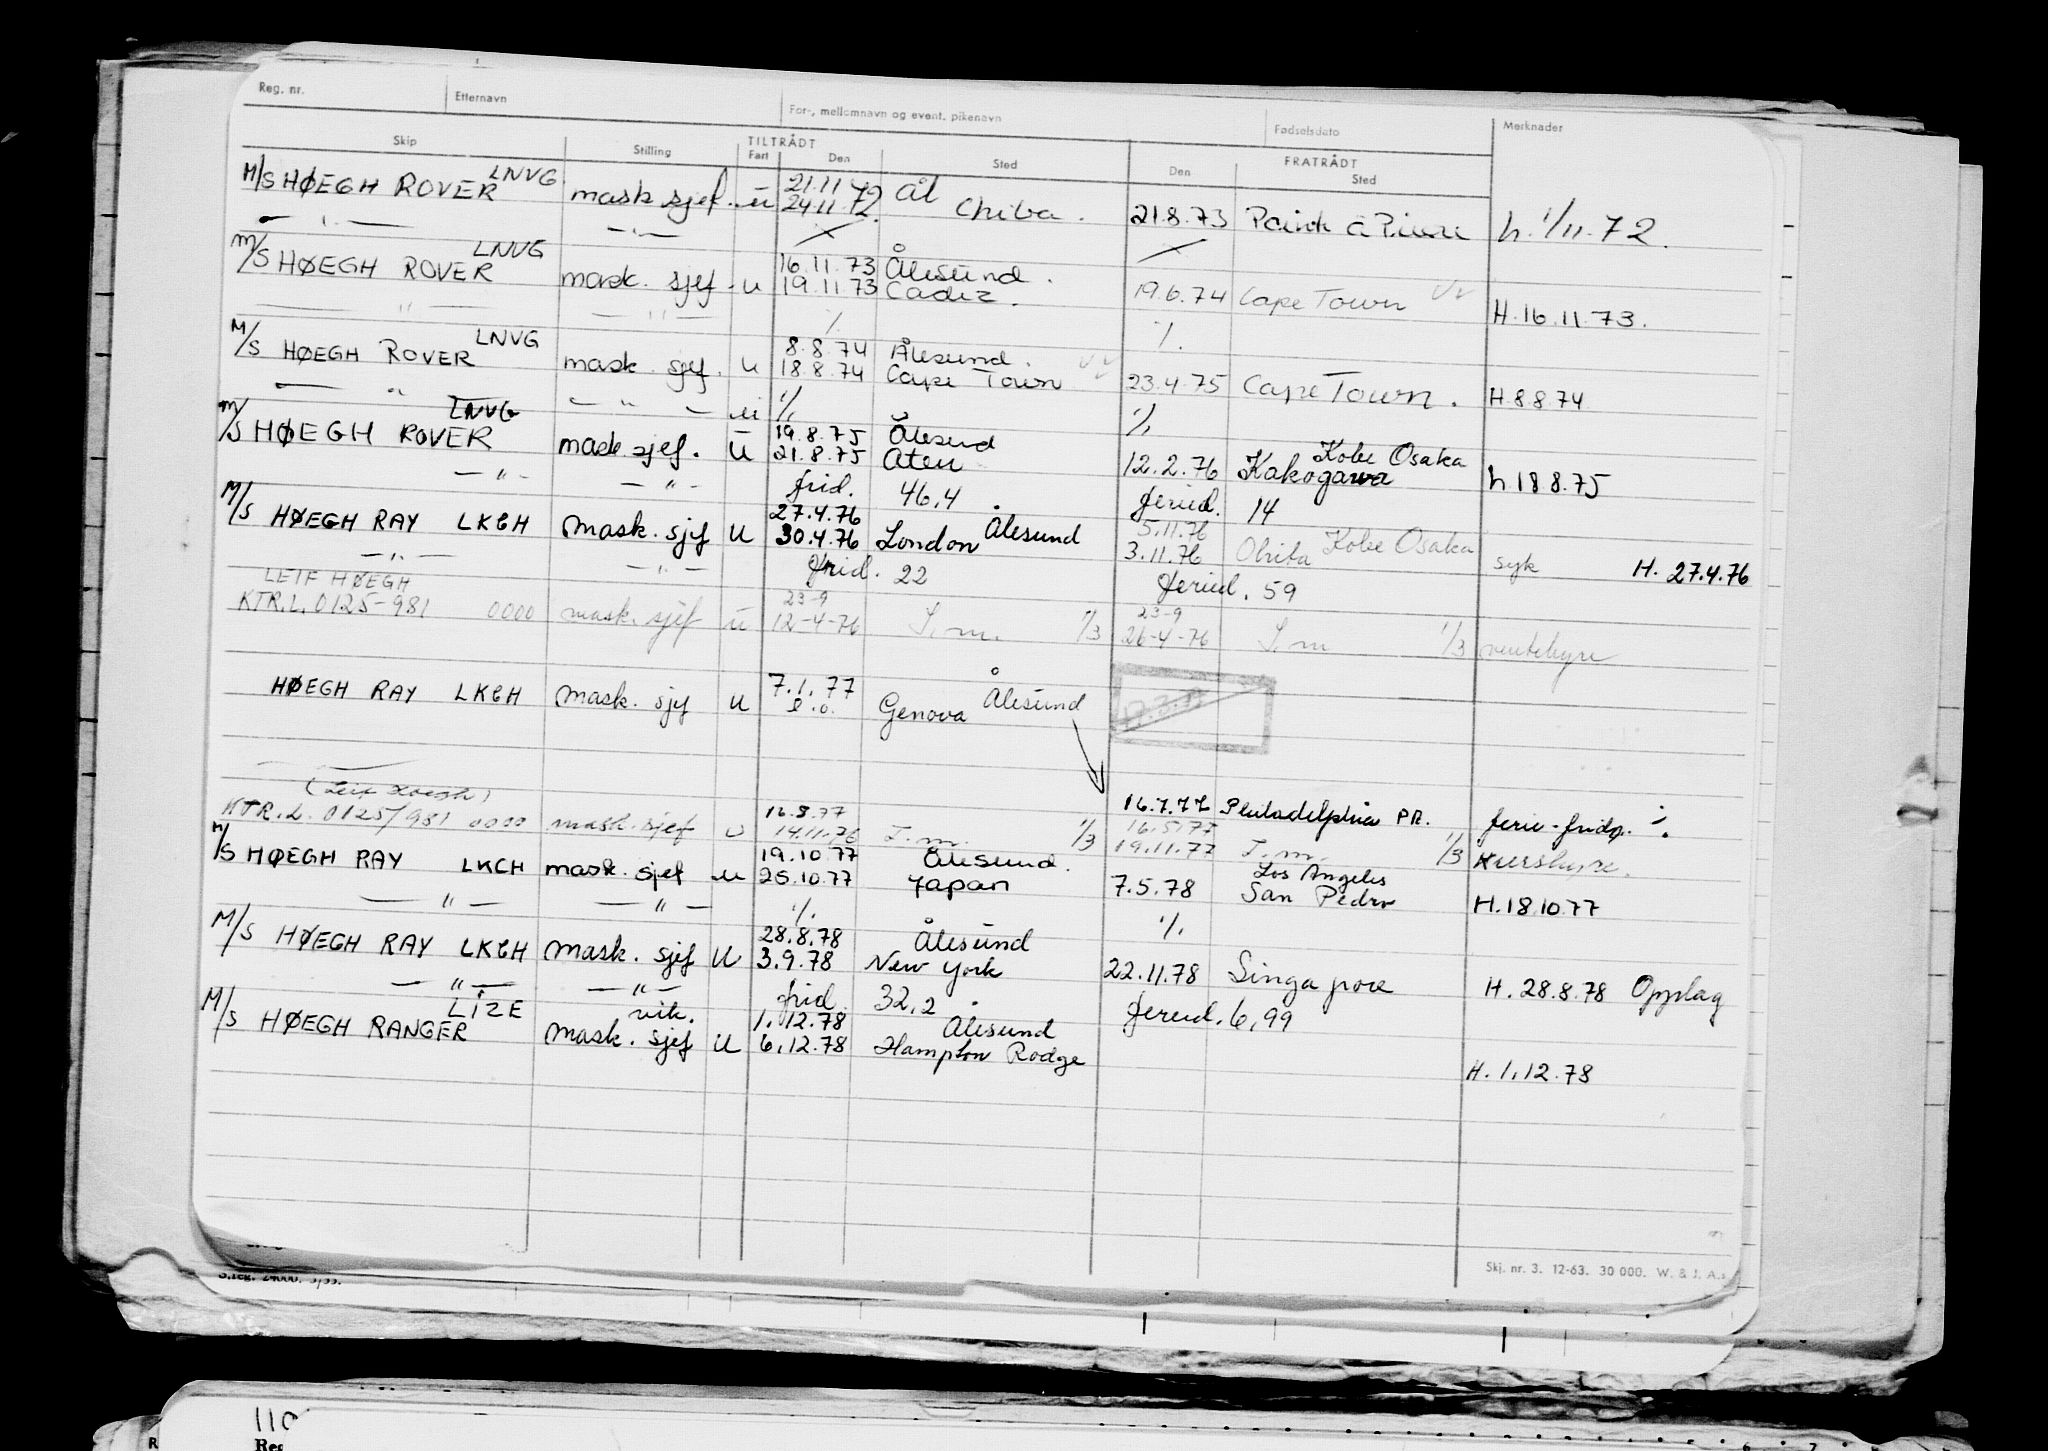 Reg. nr. Etternavn For-, mellomnavn og event. pikenavn Fødselsdato Merknader
TILTRÅDT FRATRÅDT
Skip Stilling Fart Den Sted Den Sted
LNVG 21.11 72 Ål
M/S HØEGH ROVER mask sjef. u 24.11.72. Chiba. 21.8.73 Point a Pierre h. 1/11.72.
— " — — " —
LNVG 16.11.73 Ålesund.
M/S HØEGH ROVER mask. sjef - u 19.11.73 Cadiz. 19.6.74 Cape Town H. 16.11.73.
— " — — " — % %
LNVG 8.8.74 Ålesund.
M/S HØEGH ROVER mask. sjef. u 18.8.74 Cape Town 23.4.75 Cape Town. H. 8.8.74
— " — — " — u % %
LNVG 19.8.75 Ålesund Kobe Osaka
M/S HØEGH ROVER mask sjef. u 21.8.75 Aten 12.2.76 Kakogawa h 18 8.75
— " — — " — frid. 46,4 feried. 14
27.4.76 Ålesund 5.11.76 Kobe Osaka
M/S HØEGH RAY LKCH mask. sjef u 30.4.76 London 3.11.76 Ohita syk H. 27.4.76
— " — — " — frid. 22 feried. 59
LEIF HØEGH 23-9 23-9
KTR.L. 0125-981 0000 mask. sjef u 12-4-76 T.m. 1/3 26-4-76 T.m 1/3 ventehyre
7.1.77 Ålesund
HØEGH RAY LKCH mask. sjef u s.d. Genova
(Leif Høegh) 16.8.77 16.7.77 Philadelphia PR. ferie-fridg. %.
KTR.L. 0125/981 0000 mask. sjef u 14.11.76 T.m. 1/3 16.5.77
19.11.77 T.m. 1/3 Kurshyre.
19.10.77 Ålesund. Los Angeles
M/S HØEGH RAY LKCH mask. sjef u 25.10.77 Japan 7.5.78 San Pedro H. 18.10.77
— " — — " — % %
28.8.78 Ålesund
M/S HØEGH RAY LKCH mask. sjef u 3.9.78 New York 22.11.78 Singapore H. 28.8.78 Opplag
— " — — " — frid. 32,2 feried. 6,99
LIZE vik. 1.12.78 Ålesund
M/S HØEGH RANGER mask. sjef u 6.12.78 Hampton Rodge H. 1.12.78
Skj. nr. 3. 12-63. 30 000. W. & J. A.s
S.reg. 24000. 5/55.
110
Reg